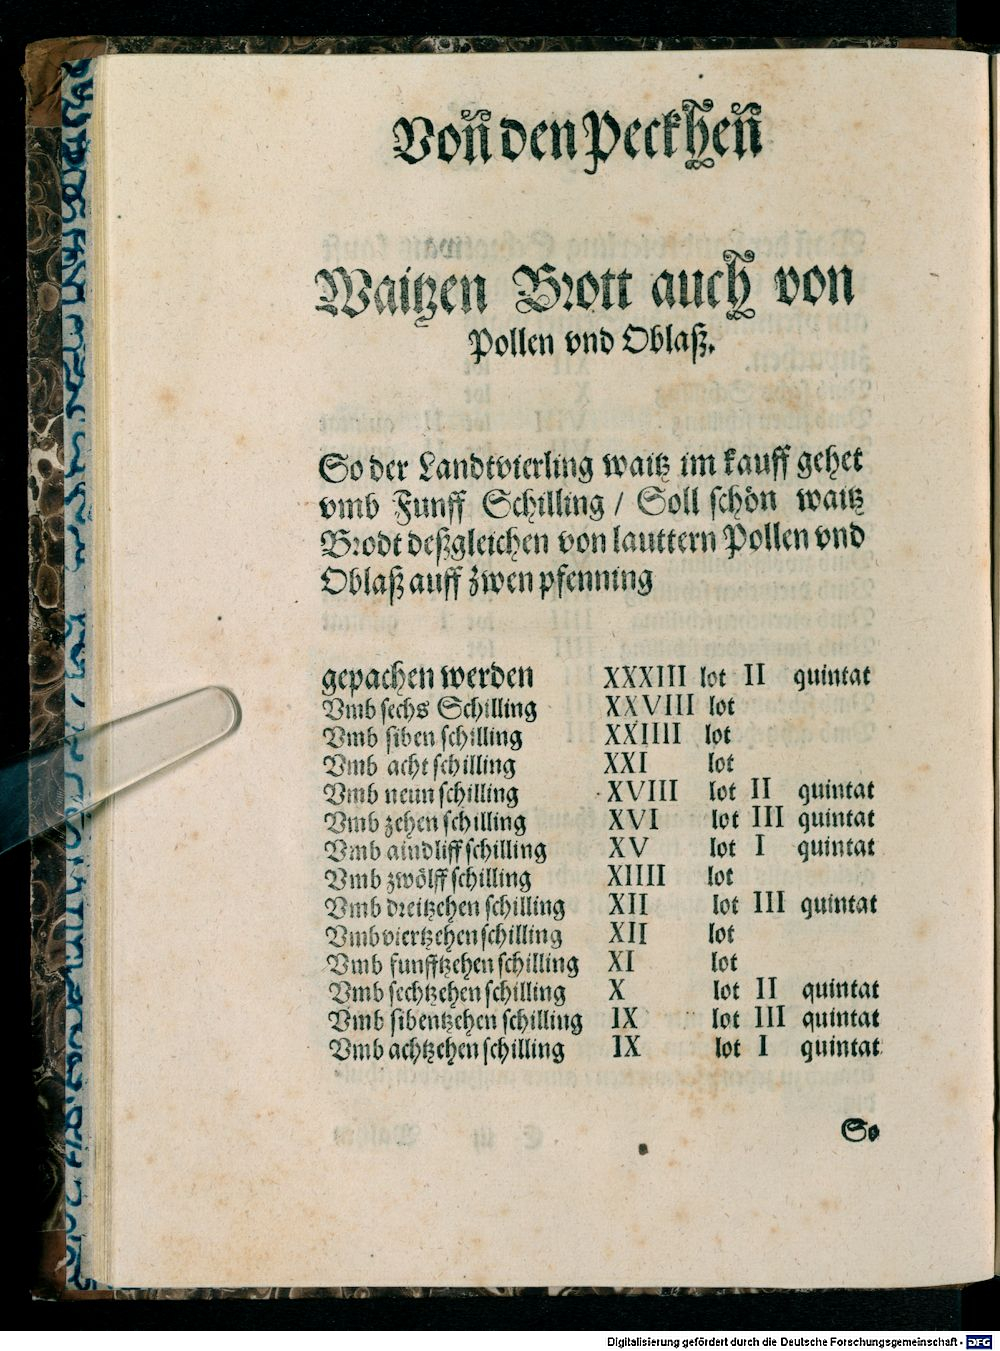 Voñ den Peckheñ
Waitzen Brott auch von
Pollen vnd Oblaß.
So der Landtvierling waitz im kauff gehet
vmb Funff Schilling / Soll schön waitz
Brodt deßgleichen von lauttern Pollen vnd
Oblaß auff zwen pfenning
gepachen werden XXXIII lot II quintat
Vmb sechs Schilling XXVIII lot
Vmb siben schilling XXIIII lot
Vmb acht schilling XXI lot
Vmb neun schilling XVIII lot II quintat
Vmb zehen schilling XVI lot III quintat
Vmb aindliff schilling XV lot I quintat
Vmb zwölff schilling XIIII lot
Vmb dreitzehen schilling XII lot III quintat
Vmb viertzehen schilling XII lot
Vmb funfftzehen schilling XI lot
Vmb sechtzehen schilling X lot II quintat
Vmb sibentzehen schilling IX lot III quintat
Vmb achtzehen schilling IX lot I quintat
So
Digitalisierung gefördert durch die Deutsche Forschungsgemeinschaft - DFG